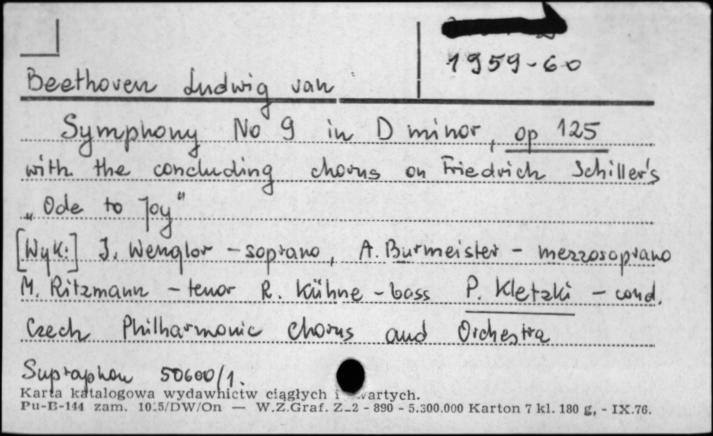 1959-60
Beethoven Ludwig van
Symphony No 9 in D minor, op 125
with the concluding chorus on Friedrich Schiller's
„Ode to Joy"
[Wyk:] I. Wenglor - soprano, A. Burmeister - mezzosoprano
M. Ritzmann - tenor R. Kühne - bass P. Kletzki - cond.
Czech Philharmonic Chorus and Orchestra
Supraphon 50600/1.
Karta katalogowa wydawnictw ciągłych i zwartych.
Pu-B-144 zam. 10.5/DW/On — W.Z.Graf. Z-2 - 890 - 5.300.000 Karton 7 kl. 180 g, - IX.76.